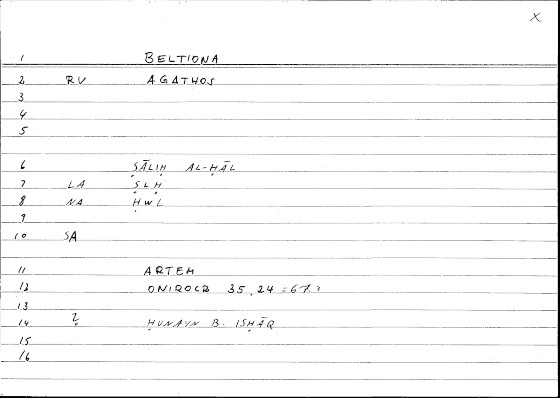 X
1 BELTIONA
2 RV AGATHOS
3
4
5
6 ṢĀLIḤ AL-ḤĀL
7 LA ṢLḤ
8 NA ḤWL
9
10 SA
11 ARTEM
12 ONIROCR 35,24 =67.
13
14 ḤUNAYN B. ISḤĀQ
15
16